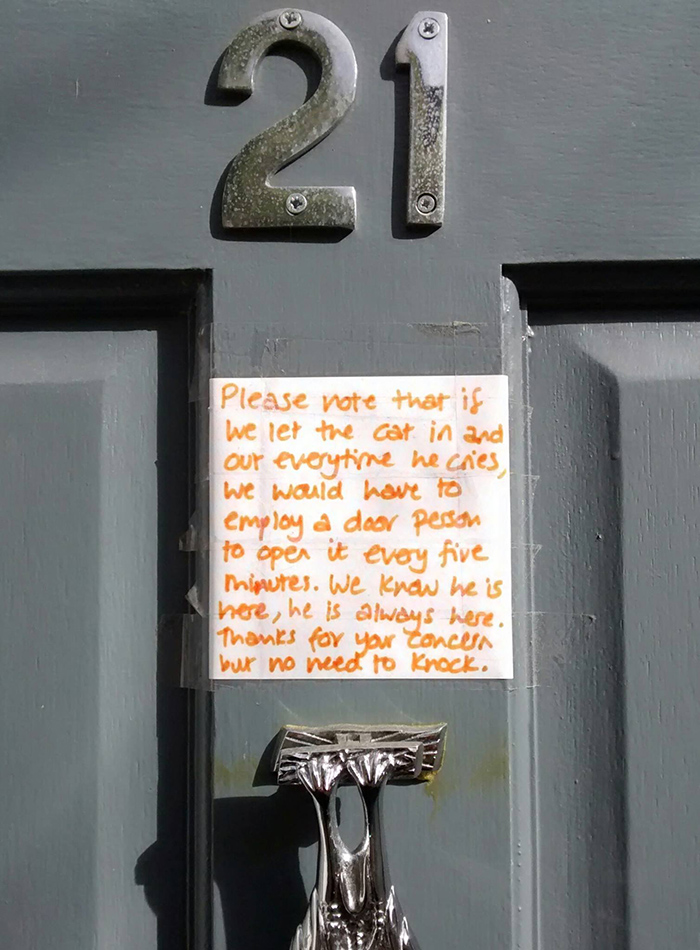 21
Please note that if
we let the cat in and
out everytime he cries,
we would have to
employ a door person
to open it every five
minutes. We know he is
here, he is always here.
Thanks for your concern
but no need to knock.